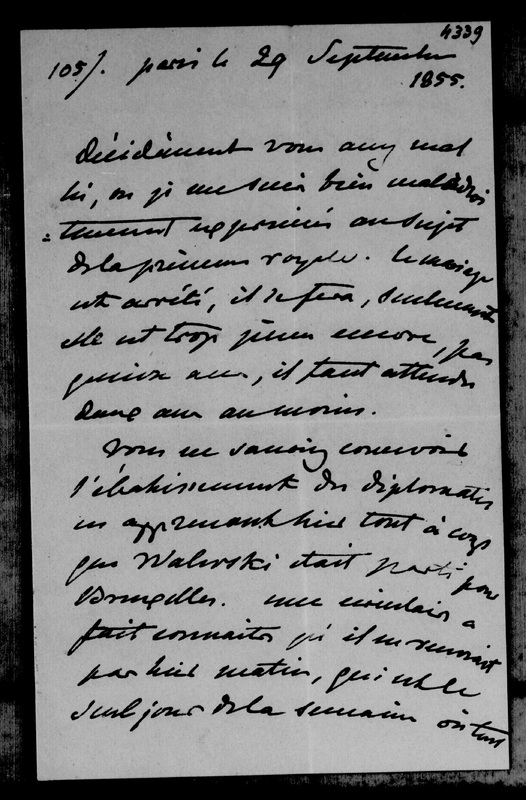 4339
105/. paris le 29 Septembre
1855.
Décidément vous avez mal
lu, ou je me suis bien maladroi
=tement exprimée au sujet
de la princesse royale. le mariage
est arrêté, il se fera, seulement
elle est trop jeune encore, pas
quinze ans, il faut attendre
deux ans au moins.
Vous ne sauriez concevoir
l'ébahissement des diplomates
en apprenant hier tout à coup
que Walewski était parti pour
Bruxelles. une circulaire a
fait connaitre qu'il ne recevrait
pas hier matin, qui est le
seul jour de la semaine où tous